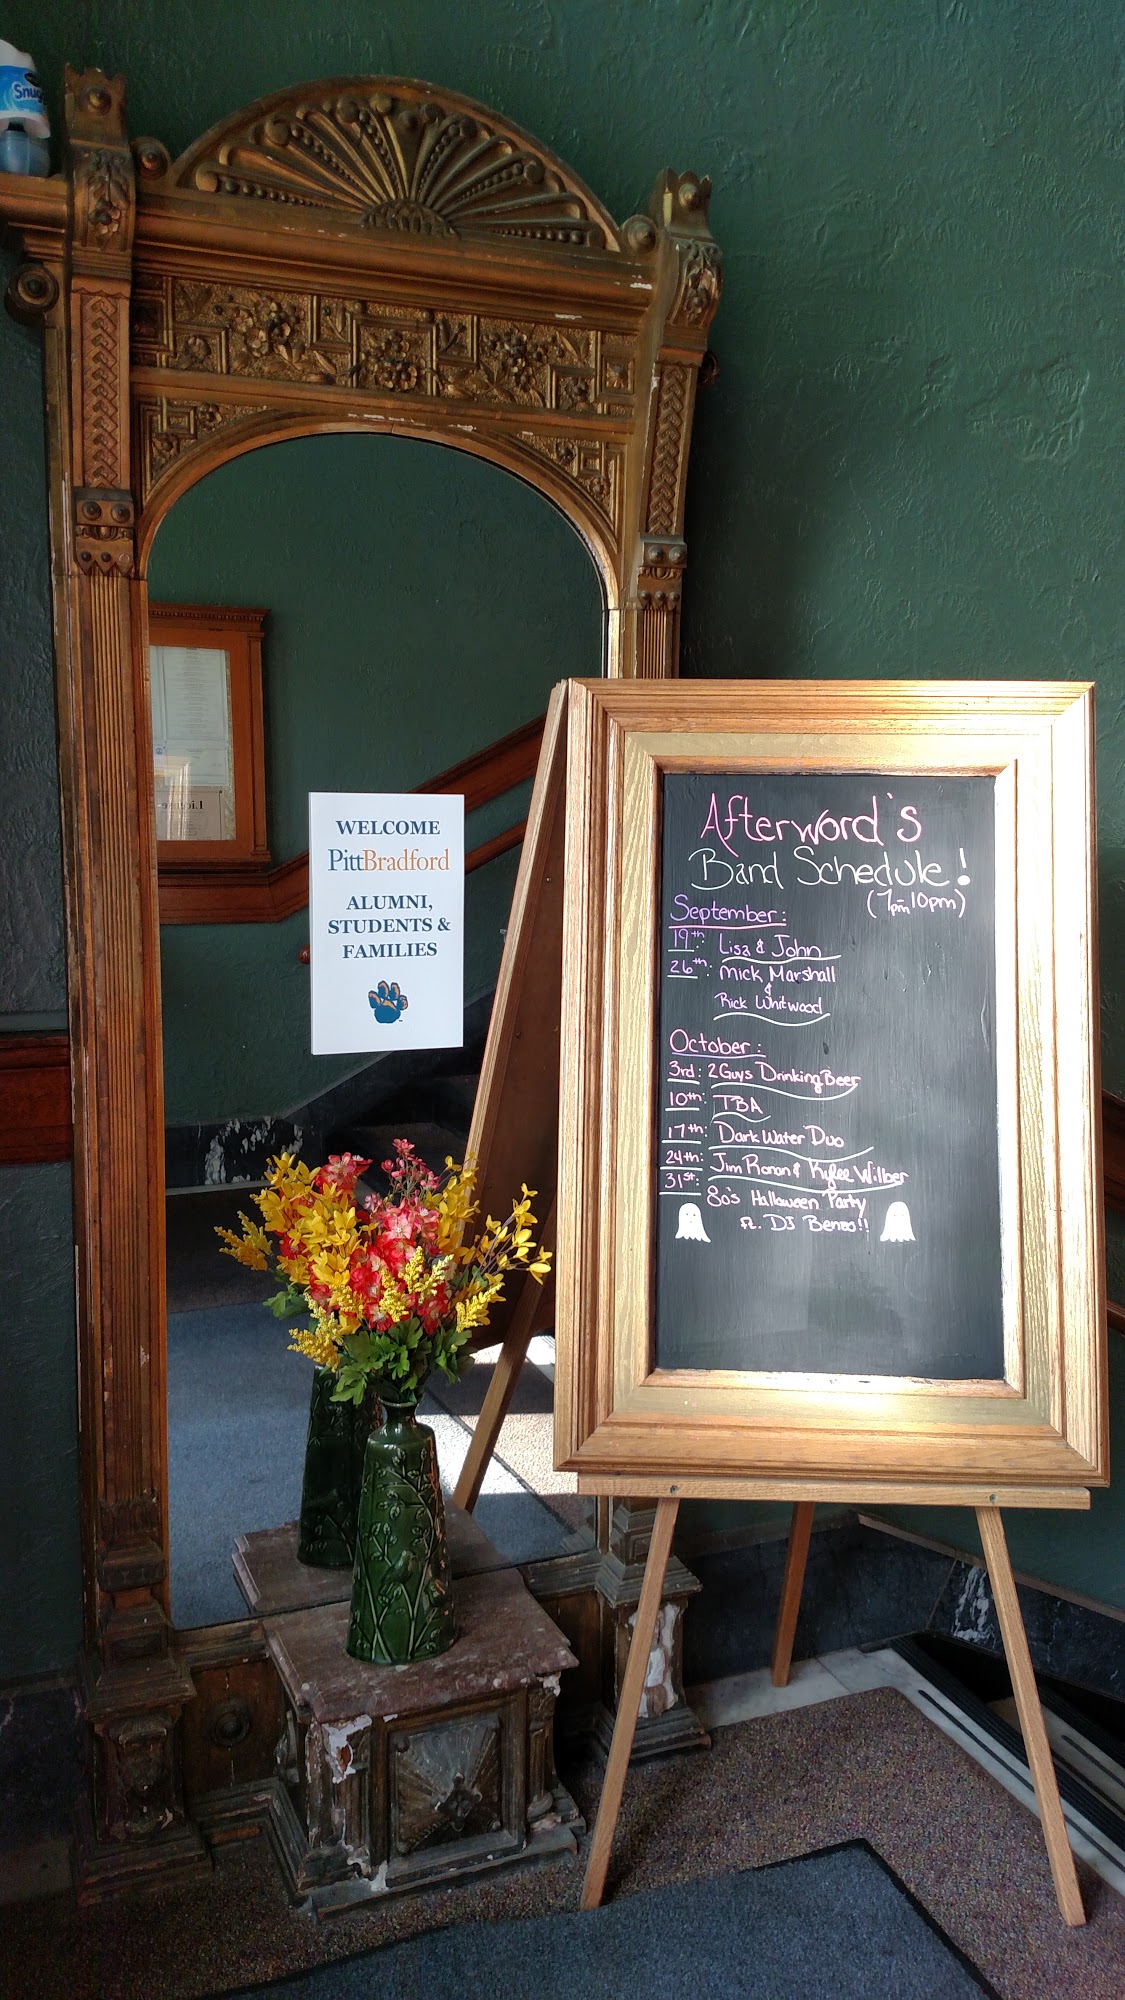 Snug
License
WELCOME
PittBradford
ALUMNI,
STUDENTS &
FAMILIES
Afterword's
Band Schedule!
(7pm-10pm)
September:
19th: Lisa & John
26th: Mick Marshall
&
Rick Whitwood
October:
3rd: 2 Guys Drinking Beer
10th: TBA
17th: Dark Water Duo
24th: Jim Ronan & Kylee Wilber
31st: 80's Halloween Party
ft. DJ Benzo!!